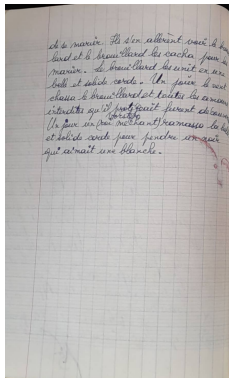 de se marier. Ils s'en allèrent voir le brouil
lard et le brouillard les cacha pour se
marier. Le brouillard les unit en une
belle et solide corde. Un jour le vent
chassa le brouillard et toutes les amours
interdites qu'il protégeait furent
Un jour un roi méchant ramassa la belle
et solide corde pour pendre un noir
qui aimait une blanche.